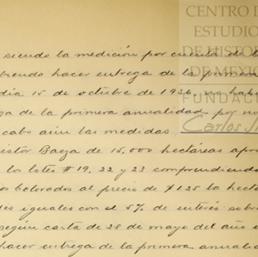 CENTRO D
ESTUDIO
DE HISTO
DE MEXI
FUNDAC
siendo la medición por cuenta de
hacer entrega de la primera
dia 15 de octubre de 1926,
ga de la primera anualidad, por no
cabo aún las medidas. Carlos
Baeza de 15,000 hectáreas apro
lotes #19, 22 y 23 comprendiendo
al precio de $1.25 la hectá
iguales con el 5% de interés sobre
según carta de 28 de mayo del año
hacer entrega de la primera anualid